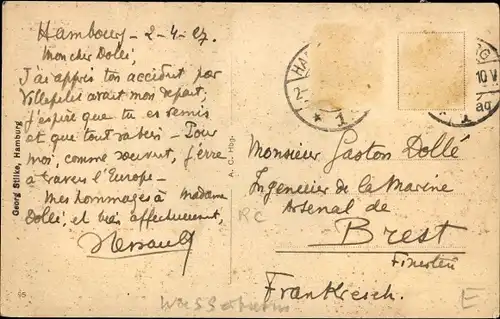 Hambourg - 2-4-27.
Mon cher Dollé,
J'ai appris ton accident par
avant mon départ,
j'espère que tu es remis
et que tout va bien - Pour
moi, comme souvent, j'erre
à travers l'Europe -
Mes hommages à Madame
Dollé, et bien affectueusement,
Georg Stilke, Hamburg
A. C. Hbg.
95
HA
1
10 V
Monsieur Gaston Dollé
Ingenieur de la Marine
Arsenal de
Brest
Finistère
Frankreich.
RC
E